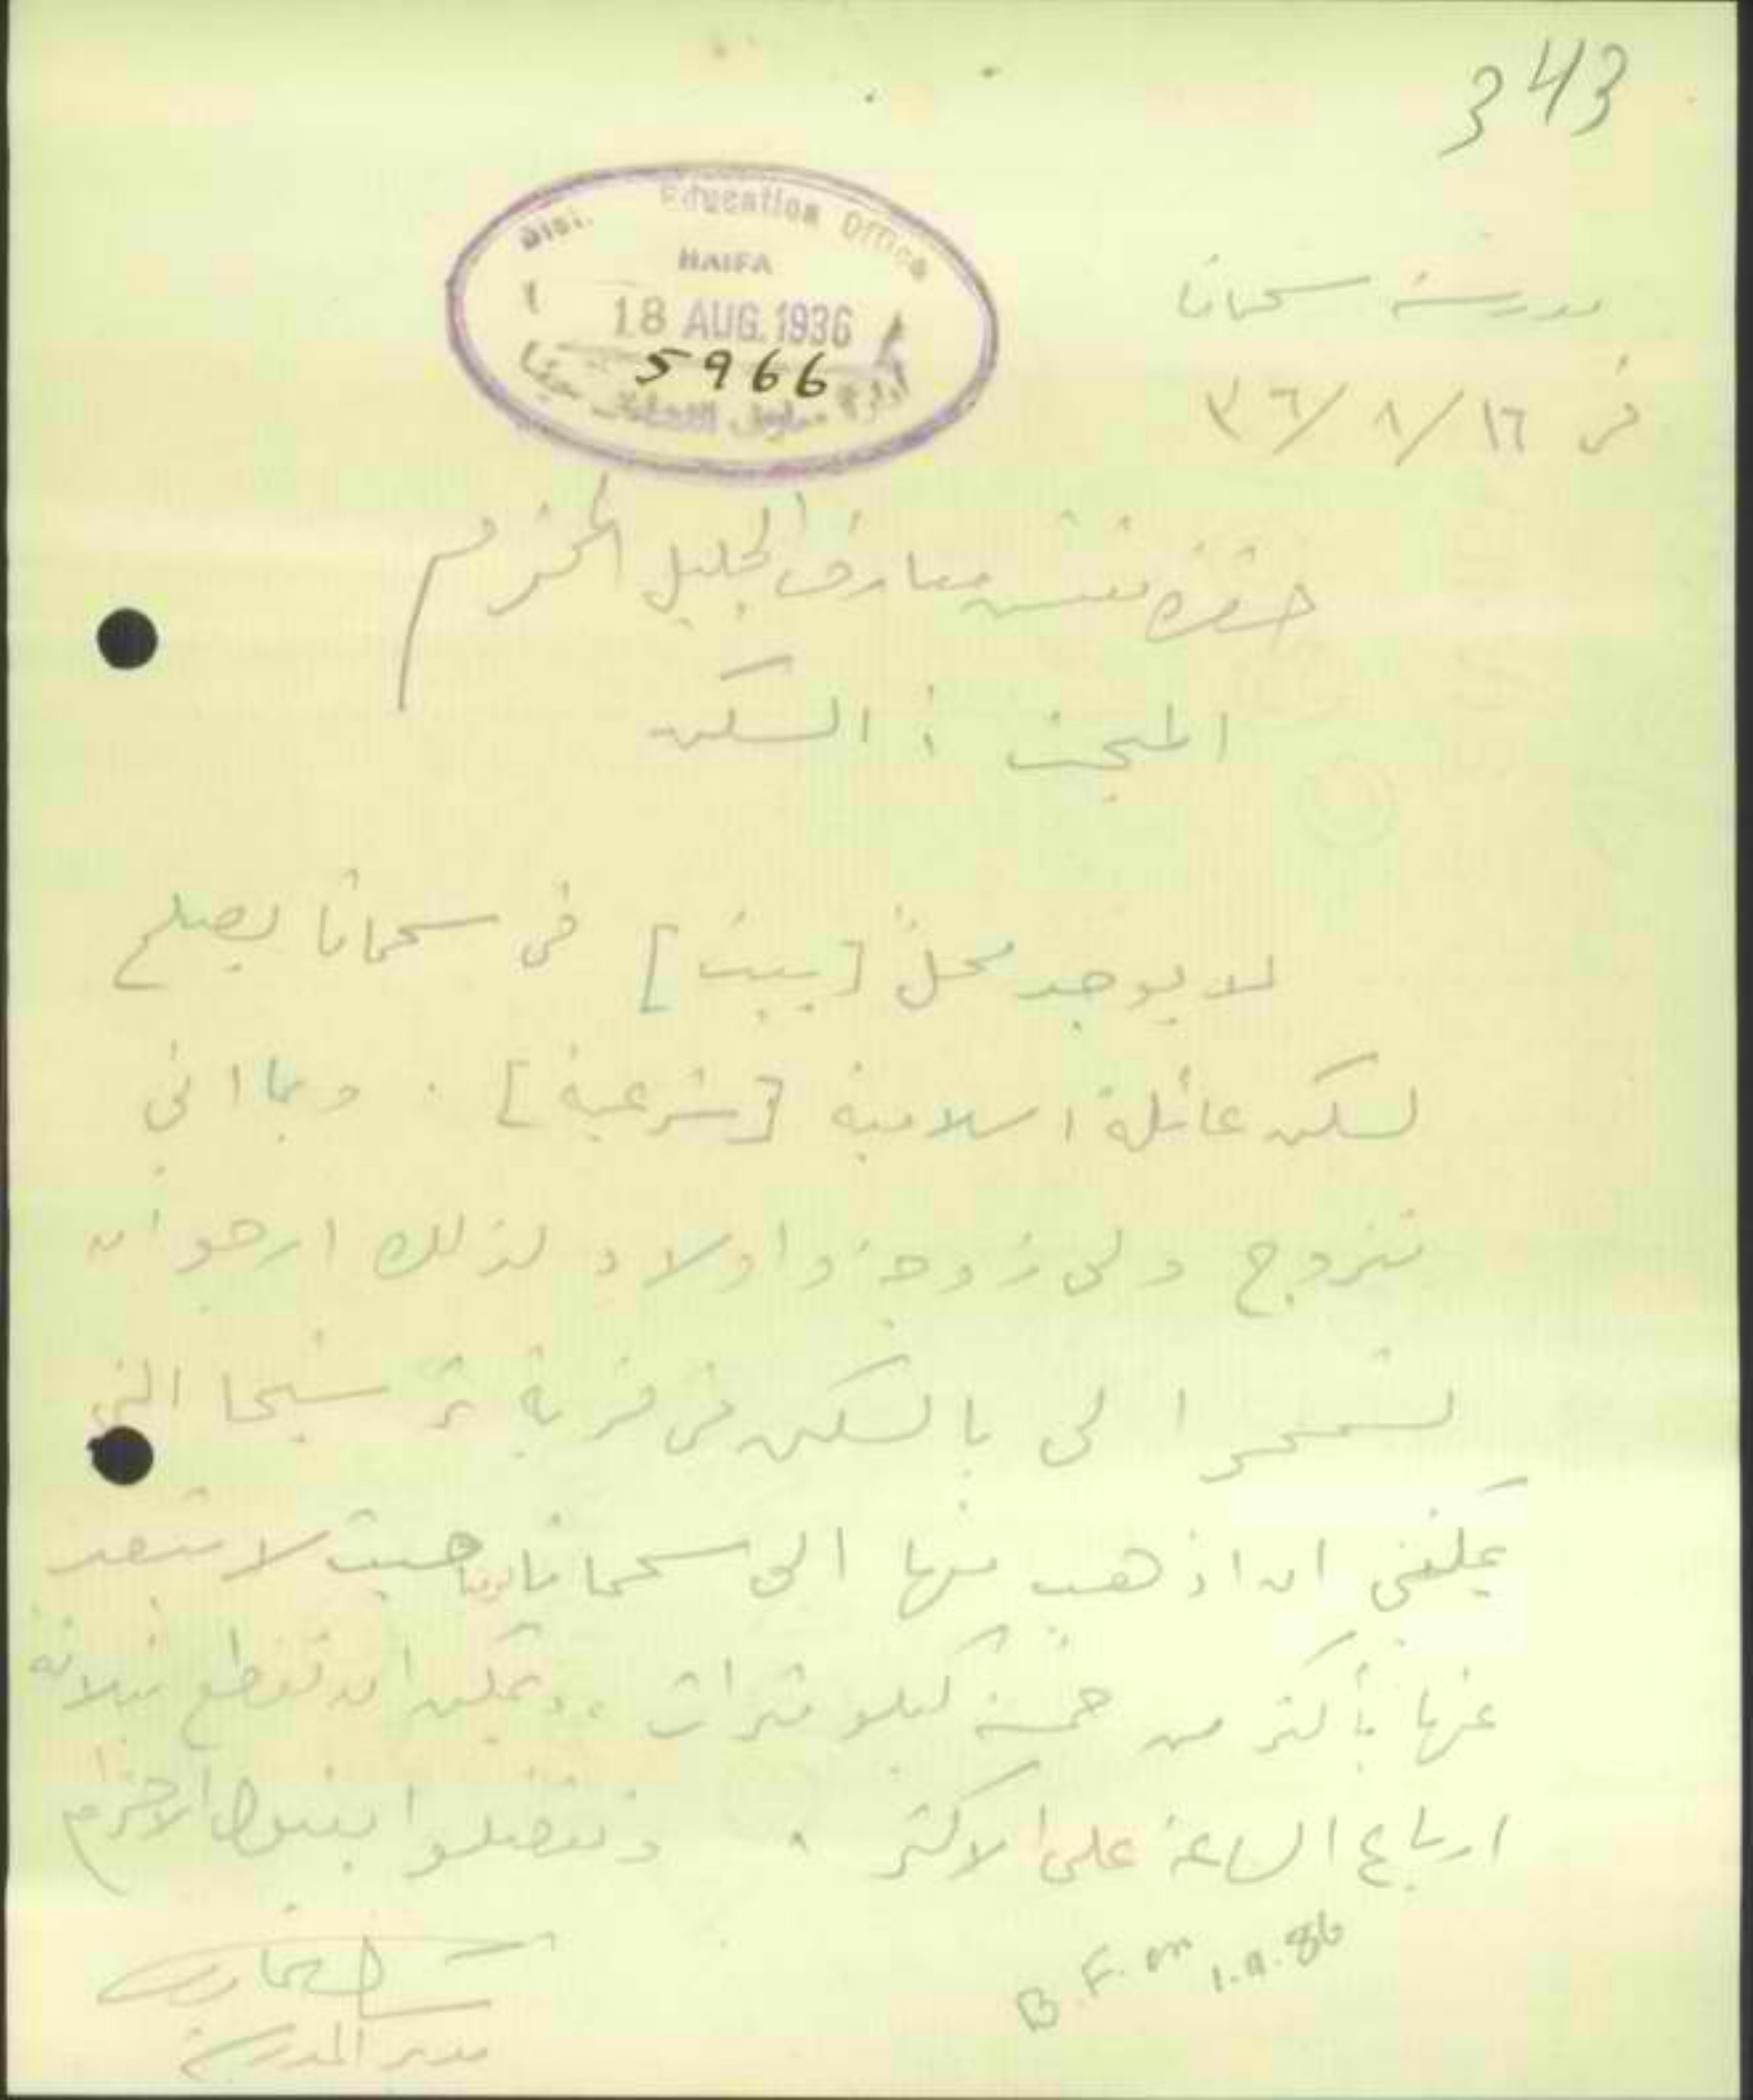 343
Dist. Education Office
HAIFA
18 AUG. 1936
5966
مدرسة سحماتا
في ١٦/ ٨/ ٣٦
حضرة مفتش معارف الجليل المحترم
المبحث : السكن
لا يوجد محل [بيت] في سحماتا يصلح
لسكن عائلة اسلامية [شرعية] . وبما اني
متزوج ولي زوجة واولاد لذلك ارجو ان
تسمحوا لي بالسكن في قرية ترشيحا التي
يمكنني ان اذهب منها الى سحماتا حيث لا تبعد
عنها بأكثر من خمسة كيلو مترات . ويمكن ان تقطع بثلاثة
ارباع الساعة على الاكثر . وتفضلوا بقبول الاحترام
مدير المدرسة
B.F. on 1.9.36